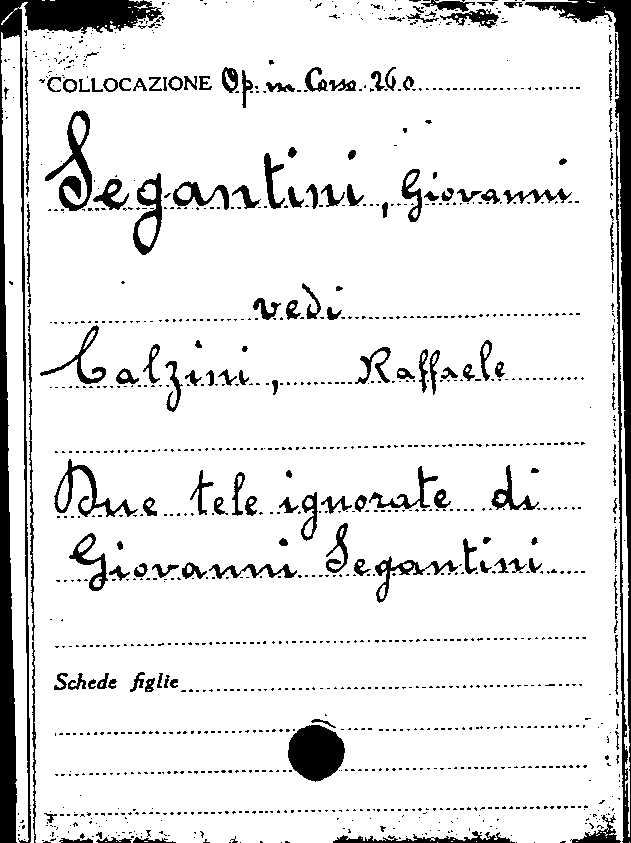 COLLOCAZIONE Op. in Corso 260
Segantini, Giovanni
vedi
Calzini, Raffaele
Due tele ignorate di
Giovanni Segantini
Schede figlie